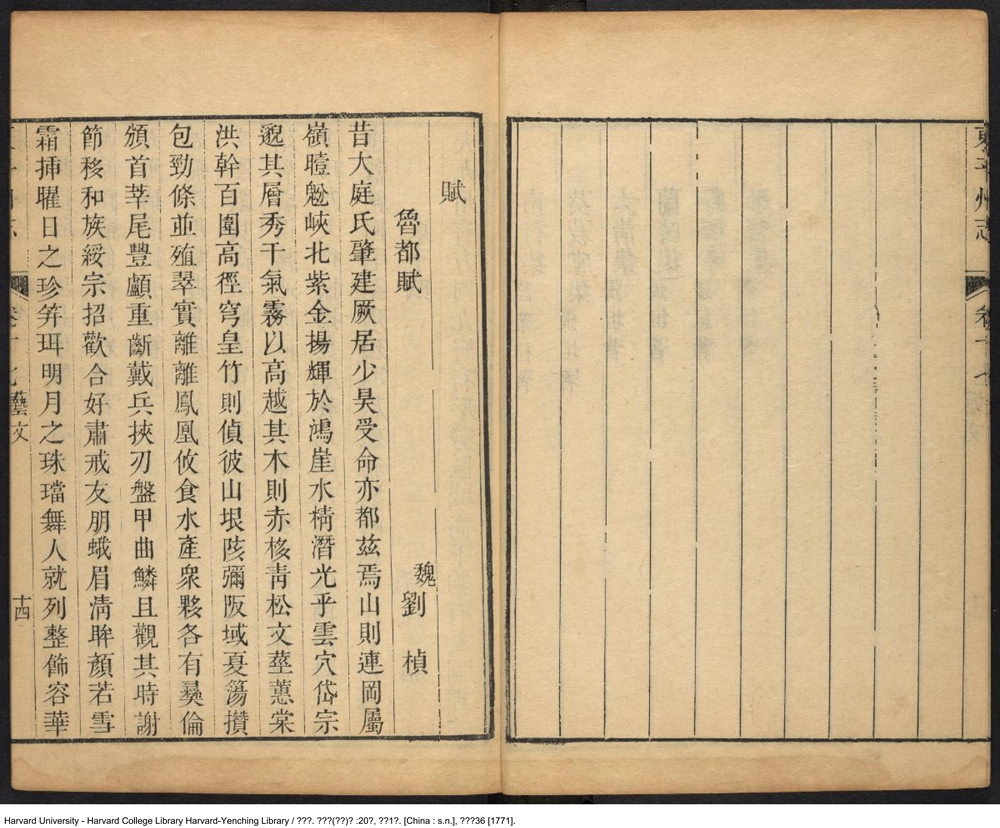 東平州志
卷十七
賦
魯都賦
魏劉楨
昔大庭氏肇建厥居少昊受命亦都茲焉山則連岡屬
嶺暟魀峽北紫金揚輝於鴻崖水精潛光乎雲穴岱宗
邈其層秀干氣霧以高越其木則赤核青松文莖蕙棠
洪幹百圍高徑穹皇竹則偵彼山垠陔彌阪域夏簜攢
包勁條並殖翠實離離鳳凰攸食水產衆夥各有彛倫
頒首莘尾豐顱重斷戴兵挾刃盤甲曲鱗且觀其時謝
節移和族綏宗招歡合好肅戒友朋蛾眉清眸顏若雪
霜揷曜日之珍笄珥明月之珠璫舞人就列整飾容華
藝文
十四
Harvard University - Harvard College Library Harvard-Yenching Library / ???. ???(??)? :20?, ??1?. [China : s.n.], ???36 [1771].